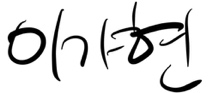 이가현